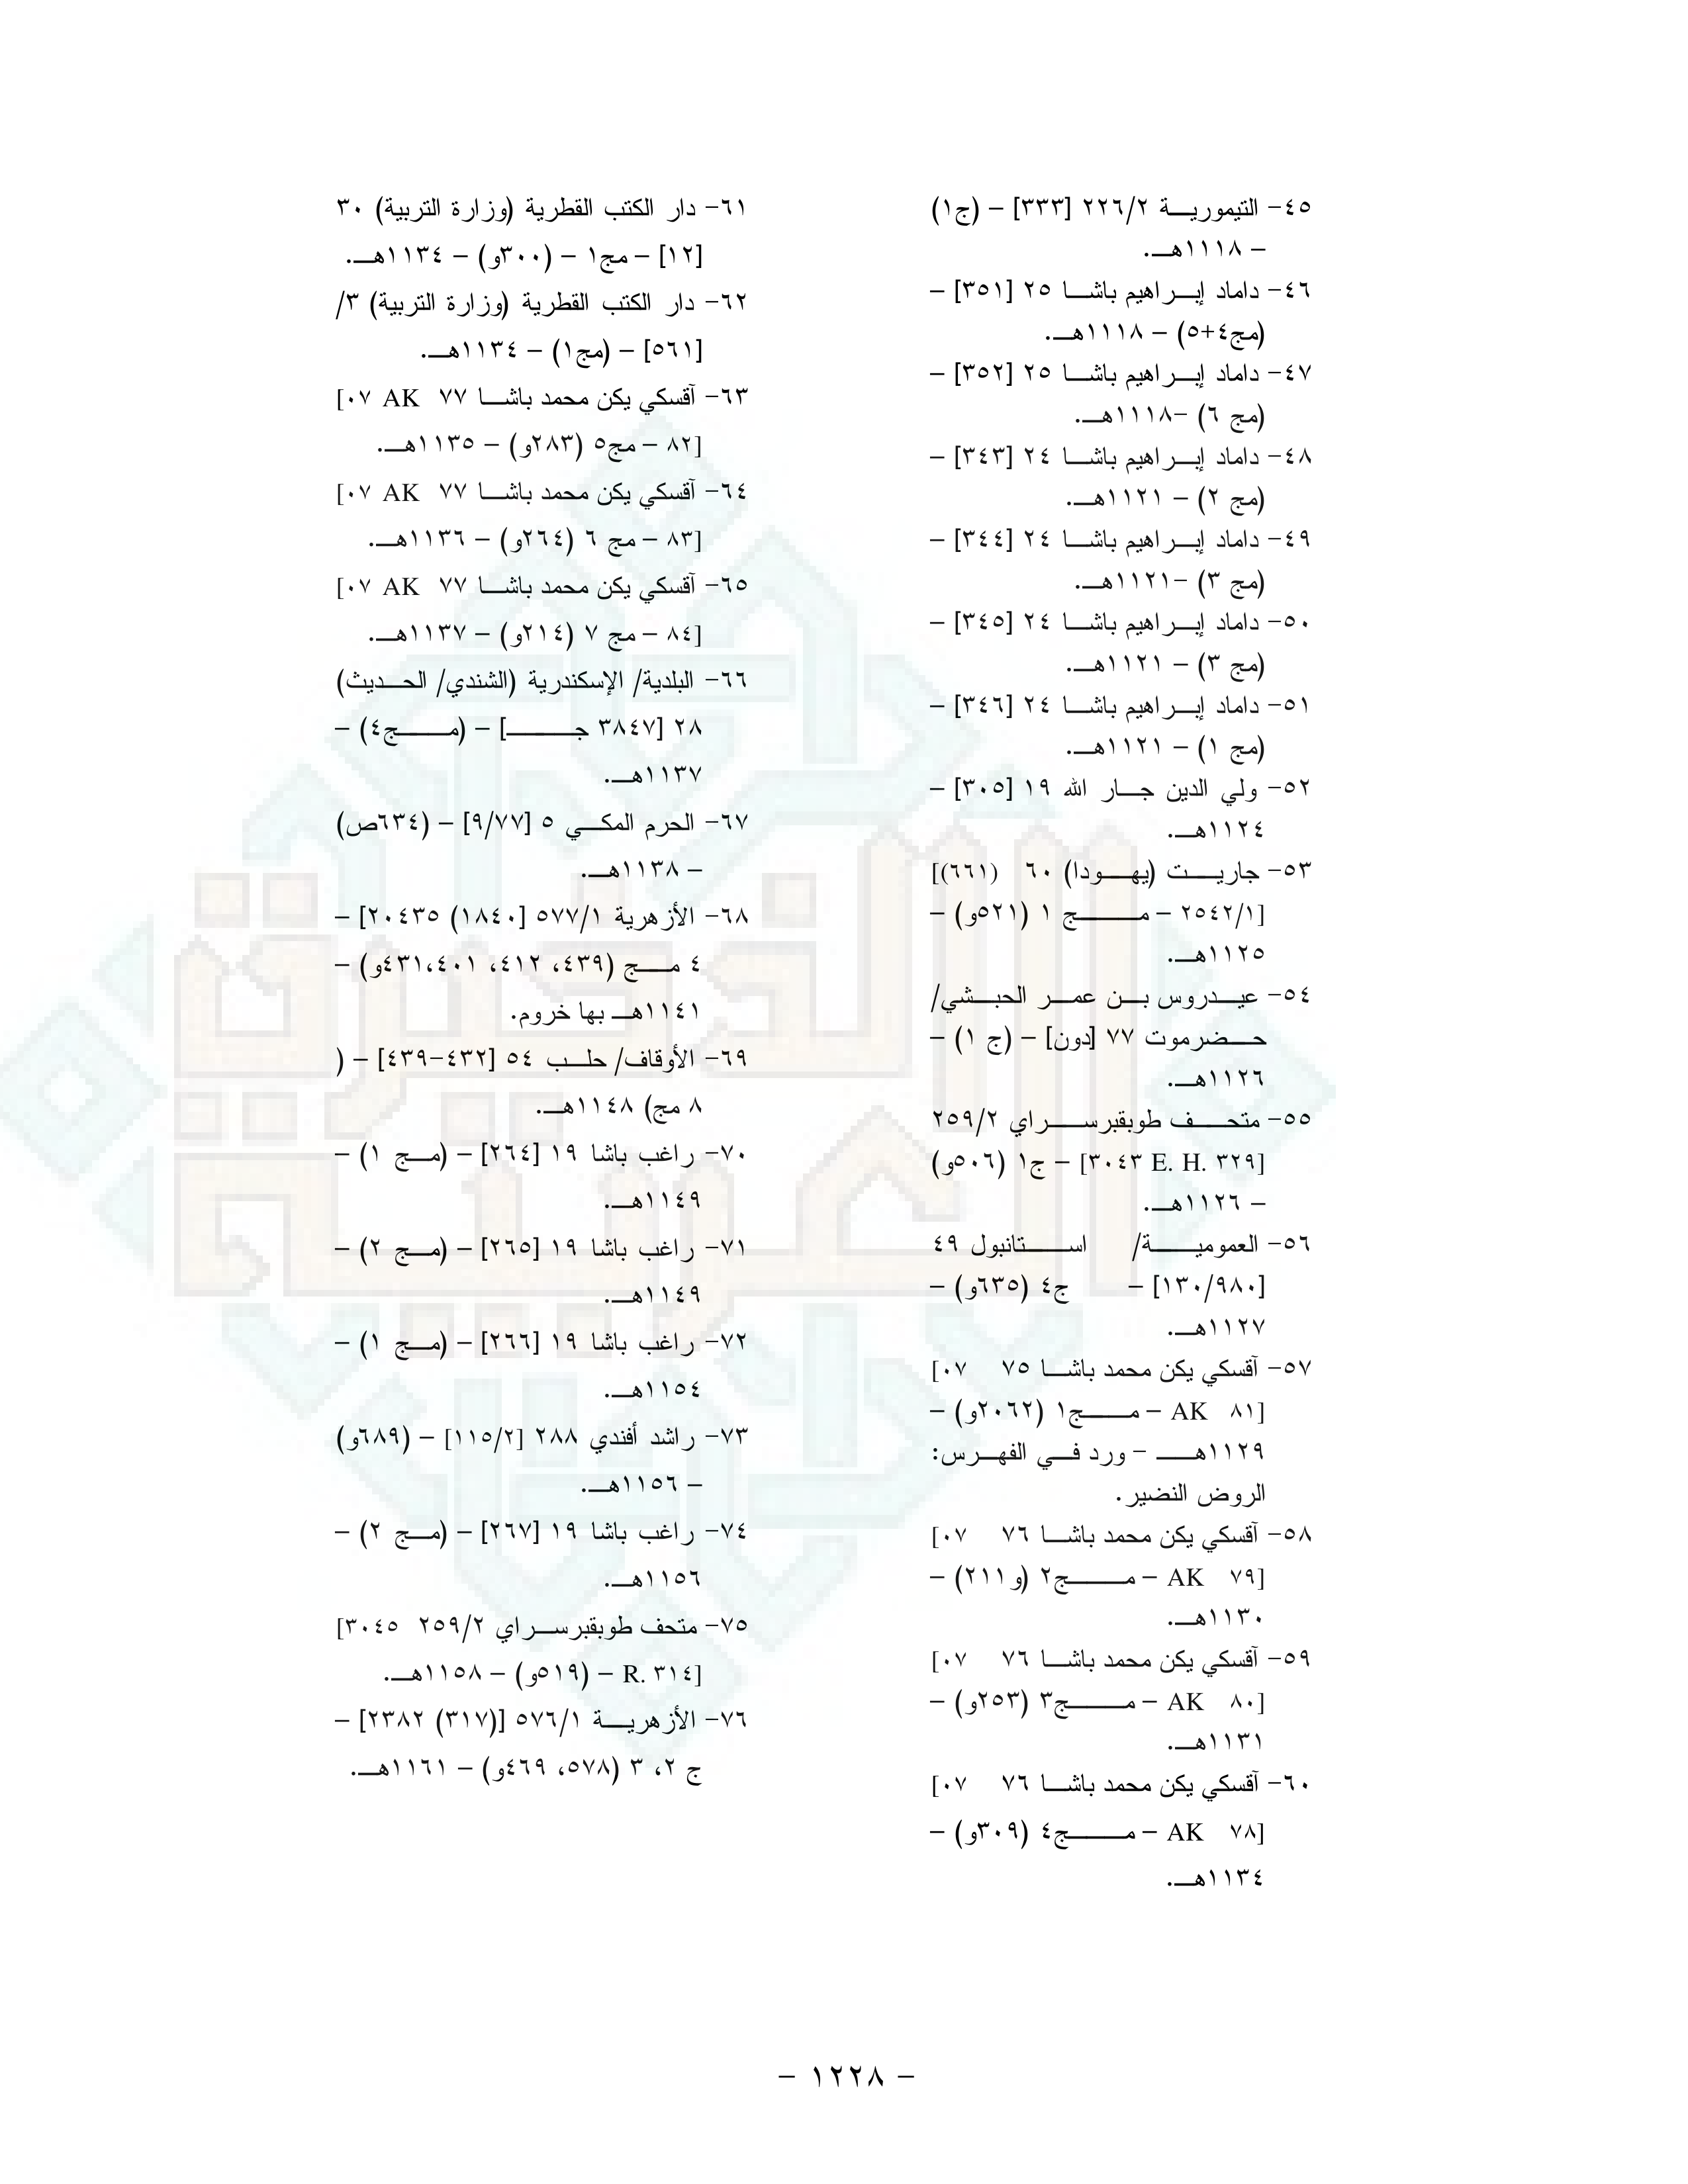 ٤٥- التيمورية ٢٢٦/٢ [٣٣٣] – (ج١)
– ١١١٨هـ.
٤٦- داماد إبراهيم باشا ٢٥ [٣٥١] –
(مج٤+٥) – ١١١٨هـ.
٤٧- داماد إبراهيم باشا ٢٥ [٣٥٢] –
(مج ٦) –١١١٨هـ.
٤٨- داماد إبراهيم باشا ٢٤ [٣٤٣] –
(مج ٢) – ١١٢١هـ.
٤٩- داماد إبراهيم باشا ٢٤ [٣٤٤] –
(مج ٣) –١١٢١هـ.
٥٠- داماد إبراهيم باشا ٢٤ [٣٤٥] –
(مج ٣) – ١١٢١هـ.
٥١- داماد إبراهيم باشا ٢٤ [٣٤٦] –
(مج ١) – ١١٢١هـ.
٥٢- ولي الدين جار الله ١٩ [٣٠٥] –
١١٢٤هـ.
٥٣- جاريت (يهودا) ٦٠ [(٦٦١)
٢٥٤٢/١] – مج ١ (٥٢١و) –
١١٢٥هـ.
٥٤- عيدروس بن عمر الحبشي/
حضرموت ٧٧ [دون] – (ج ١) –
١١٢٦هـ.
٥٥- متحف طوبقبرسراي ٢٥٩/٢
[٣٠٤٣ E. H. ٣٢٩] – ج١ (٥٠٦و)
– ١١٢٦هـ.
٥٦- العمومية/ استانبول ٤٩
[١٣٠/٩٨٠] – ج٤ (٦٣٥و) –
١١٢٧هـ.
٥٧- آقسكي يكن محمد باشا ٧٥ [٠٧
AK ٨١] – مج١ (٢٠٦٢و) –
١١٢٩هـ – ورد في الفهرس:
الروض النضير.
٥٨- آقسكي يكن محمد باشا ٧٦ [٠٧
AK ٧٩] – مج٢ (و٢١١) –
١١٣٠هـ.
٥٩- آقسكي يكن محمد باشا ٧٦ [٠٧
AK ٨٠] – مج٣ (٢٥٣و) –
١١٣١هـ.
٦٠- آقسكي يكن محمد باشا ٧٦ [٠٧
AK ٧٨] – مج٤ (٣٠٩و) –
١١٣٤هـ.
٦١- دار الكتب القطرية (وزارة التربية) ٣٠
[١٢] – مج١ – (٣٠٠و) – ١١٣٤هـ.
٦٢- دار الكتب القطرية (وزارة التربية) ٣/
[٥٦١] – (مج١) – ١١٣٤هـ.
٦٣- آقسكي يكن محمد باشا ٧٧ [٠٧ AK
٨٢] – مج٥ (٢٨٣و) – ١١٣٥هـ.
٦٤- آقسكي يكن محمد باشا ٧٧ [٠٧ AK
٨٣] – مج ٦ (٢٦٤و) – ١١٣٦هـ.
٦٥- آقسكي يكن محمد باشا ٧٧ [٠٧ AK
٨٤] – مج ٧ (٢١٤و) – ١١٣٧هـ.
٦٦- البلدية/ الإسكندرية (الشندي/ الحديث)
٢٨ [٣٨٤٧ جـ] – (مج٤) –
١١٣٧هـ.
٦٧- الحرم المكي ٥ [٩/٧٧] – (٦٣٤ص)
– ١١٣٨هـ.
٦٨- الأزهرية ٥٧٧/١ [(١٨٤٠) ٢٠٤٣٥] –
٤ مج (٤٣٩، ٤١٢، ٤٣١،٤٠١و) –
١١٤١هـ بها خروم.
٦٩- الأوقاف/ حلب ٥٤ [٤٣٢-٤٣٩] – (
٨ مج) ١١٤٨هـ.
٧٠- راغب باشا ١٩ [٢٦٤] – (مج ١) –
١١٤٩هـ.
٧١- راغب باشا ١٩ [٢٦٥] – (مج ٢) –
١١٤٩هـ.
٧٢- راغب باشا ١٩ [٢٦٦] – (مج ١) –
١١٥٤هـ.
٧٣- راشد أفندي ٢٨٨ [١١٥/٢] – (٦٨٩و)
– ١١٥٦هـ.
٧٤- راغب باشا ١٩ [٢٦٧] – (مج ٢) –
١١٥٦هـ.
٧٥- متحف طوبقبرسراي ٢٥٩/٢ [٣٠٤٥
R. ٣١٤] – (٥١٩و) – ١١٥٨هـ.
٧٦- الأزهرية ٥٧٦/١ [(٣١٧) ٢٣٨٢] –
ج ٢، ٣ (٥٧٨، ٤٦٩و) – ١١٦١هـ.
الذخيرة
العربية
– ١٢٢٨ –